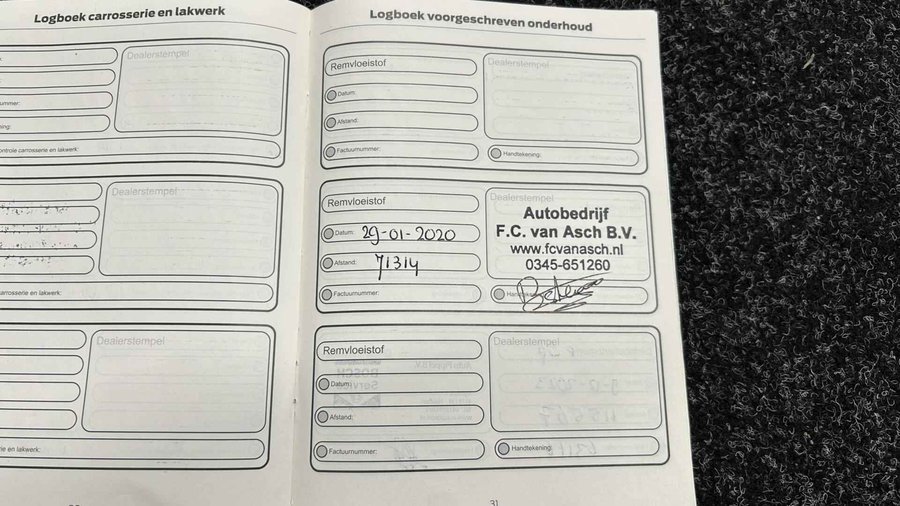 Logboek carrosserie en lakwerk
Dealerstempel
ontrole carrosserie en lakwerk:
Dealerstempel
carrosserie en lakwerk:
Dealerstempel
rie en lakwerk:
Logboek voorgeschreven onderhoud
Remvloeistof
Datum:
Afstand:
Factuurnummer:
Dealerstempel
Handtekening:
Remvloeistof
Datum: 29-01-2020
Afstand: 71314
Factuurnummer:
Dealerstempel
Autobedrijf
F.C. van Asch B.V.
www.fcvanasch.nl
0345-651260
Remvloeistof
Datum:
Afstand:
Factuurnummer:
Dealerstempel
Handtekening:
31